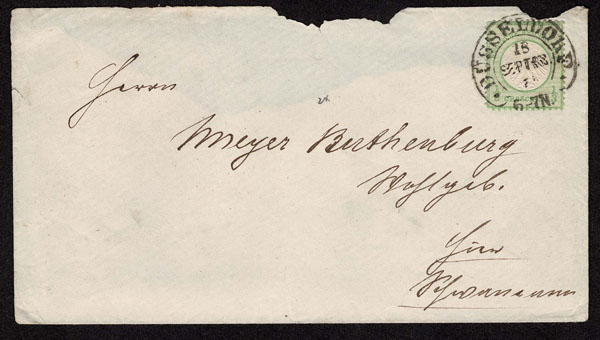 DÜSSELDORF
18
SEPTBR
6-7N.
Herrn
Meyer Berthenburg
Wohlgeb.
Hier